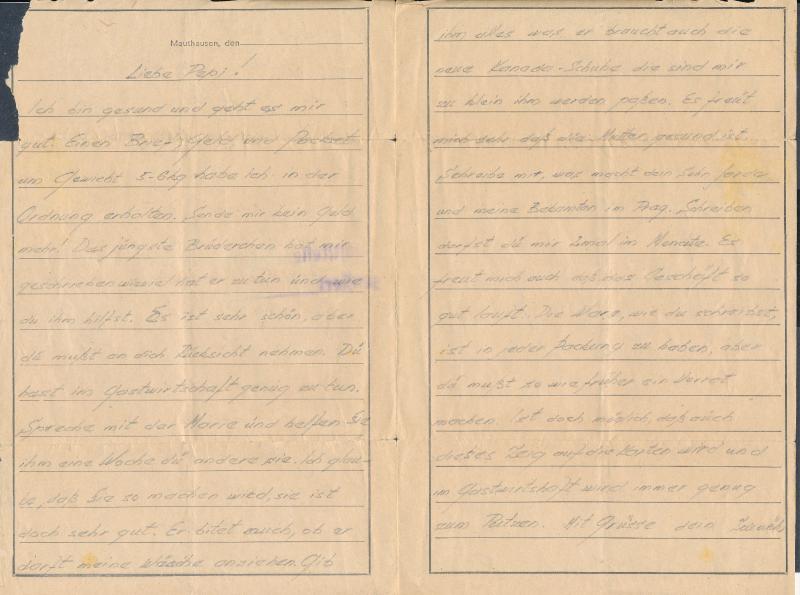 Mauthausen, den
Liebe Pepi!
Ich bin gesund und geht es mir
gut. Einen Brief, Geld und Packet
um Gewicht 5-6kg habe ich in der
Ordnung erhalten. Sende mir kein Geld
mehr! Das jüngste Brüderchen hat mir
geschrieben wieviel hat er zu tun und wie
du ihm hilfst. Es ist sehr schön, aber
du mußt an dich Rücksicht nehmen. Du
hast im Gastwirtschaft genug zu tun.
Spreche mit der Marie und helfen Sie
ihm eine Woche du andere sie. Ich glau-
be, daß Sie so machen wird, sie ist
doch sehr gut. Er bitet euch, ob er
dorft meine Wäsche anziehen. Gib
ihm alles was er braucht auch die
neue Kanada-Schuhe die sind mir
zu klein ihm werden paßen. Es freut
mich sehr daß die Mutter gesund ist.
Schreibe mir, was macht dein Sohn
und meine Bekamten im Prag. Schreiben
darfst du mir 2mal im Monate. Es
freut mich auch daß das Geschäft so
gut lauft. Die Ware, wie du schreibst,
ist in jeder Packung zu haben, aber
du mußt so wie früher ein Vorrat
machen. Ist doch möglich, daß auch
dieses Zeig auf die Karten wird und
im Gastwirtshaft wird immer genug
zum Putzen. Mit Grüsse dein